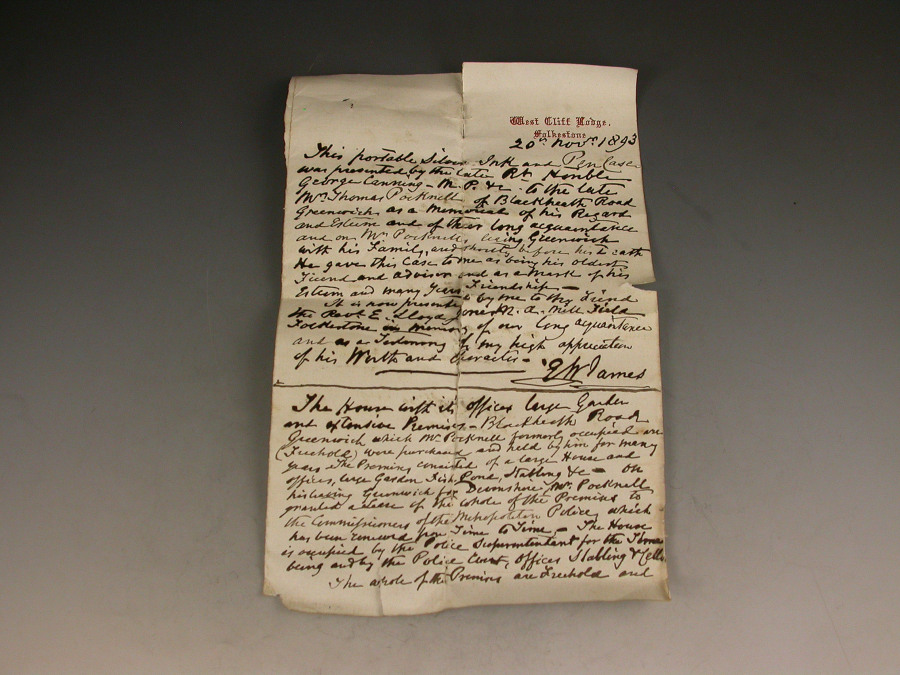 West Cliff Lodge,
Folkestone
20th Novr 1893
This portable Silver Ink and Pen Case
was presented by the late Rt Honble
George Canning - M.P. &c - to the late
Mr Thomas Pocknell of Blackheath Road
Greenwich as a Memorial of his Regard
and Esteem and of their long acquaintance
and on Mr Pocknell, leaving Greenwich
with his Family, and shortly before his death
He gave this Case to me as being his oldest
Friend and advisor and as a Mark of his
Esteem and many Years Friendship -
It is now presented by me to my friend
the Revd E. Lloyd Jones M.A. Mill Field
Folkestone in Memory of our long acquaintance
and as a Testimony of my high appreciation
of his Worth and Character -
E W James
The House with its offices large Garden
and extensive Premises - Blackheath Road
Greenwich which Mr Pocknell formerly occupied are
(Freehold) were purchased and held by him for many
years The Premises consisted of a large House and
offices, large Garden Fish Pond, Stabling &c - On
his leaving Greenwich for Devonshire Mr Pocknell
granted a Lease of the whole of the Premises to
the Commissioners of the Metropolitan Police, which
has been renewed from Time to Time - The House
is occupied by the Police Superintendant for the Time
being and by the Police Court, offices Stabling & Cells
The whole of the Premises are Freehold and